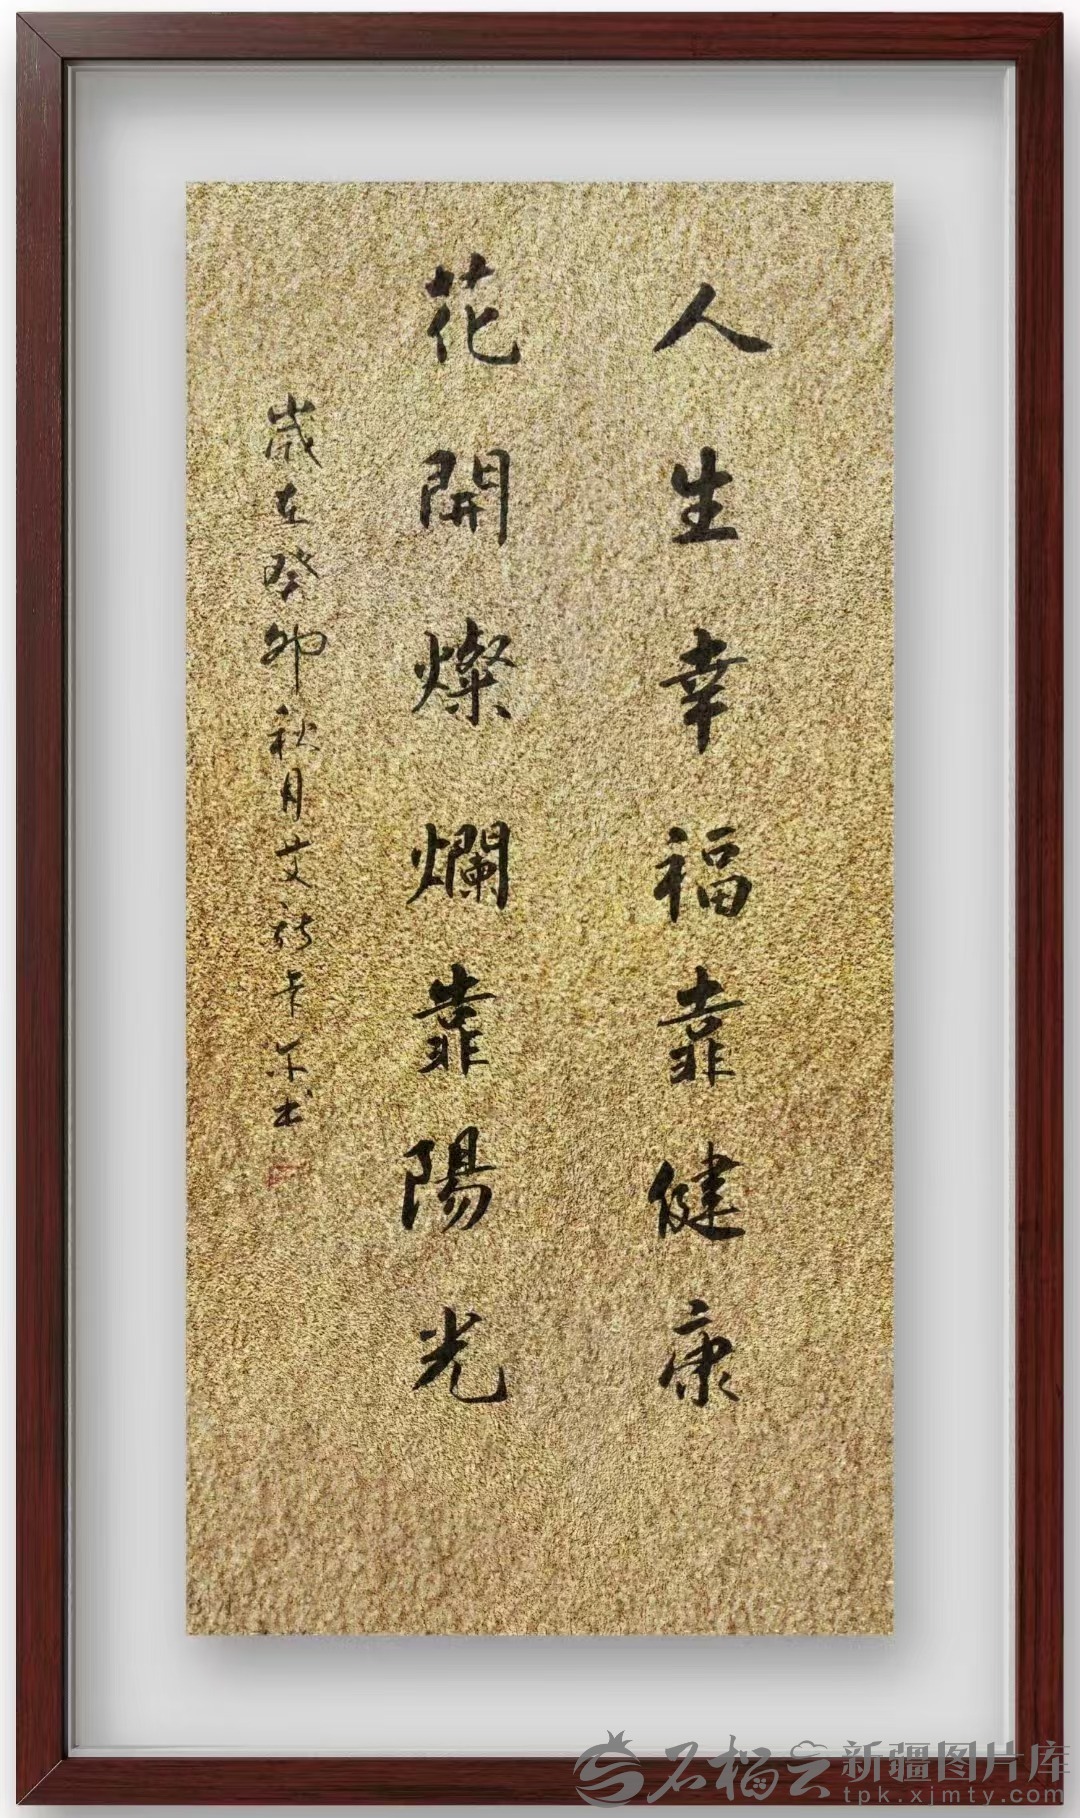 人生幸福靠健康
花開燦爛靠陽光
歲在癸卯秋月艾尔卡尔书
石榴云 新疆图片库
tpk.xjmty.com